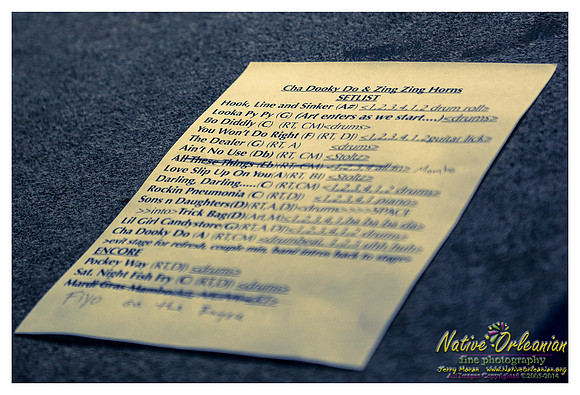 Cha Dooky Do & Zing Zing Horns
SETLIST
Hook, Line and Sinker (A#) <1,2,3,4,1,2 drum roll>
Looka Py Py (G) (Art enters as we start....)<drums>
Bo Diddly (C) (RT, CM)<drums>
You Won't Do Right (F) (RT, DJ) <1,2,3,4,1,2guitar lick>
The Dealer (G) (RT, A) <drums>
Ain't No Use (Db) (RT, CM) <Stoltz>
All These Things (Eb)(RT, CM) Maybe
Love Slip Up On You(A)(RT, BJ) <Stoltz>
Darling, Darling.....(C) (RT,CM) <1,2,3,4,1,2 drums>
Rockin Pneumonia (C) (RT,DJ) <1,2,3,4,1 piano>
Sons n Daughters(D)(RT,A,DJ)<drums>>>>>SPACE
>>into>Trick Bag(D)(Art,M)<1,2,3,4,1,2 ba ba ba da>
Lil Girl Candystore(G)(RT,A,DJ)<1,2,3,4,1,2 drums>
Cha Dooky Do (A) (RT,CM) <drumbeat, 1,2,3 uhh huh>
>exit stage for refresh, couple min, band intro, back to stage>
ENCORE
Pockey Way (RT,DJ) <drums>
Sat. Night Fish Fry (C) (RT,DJ) <drums>
Mardi Gras Mambo
Fiyo on the Bayou
Native Orleanian
fine photography
Jerry Moran www.NativeOrleanian.org
All Images Copyrighted ©2005-2014